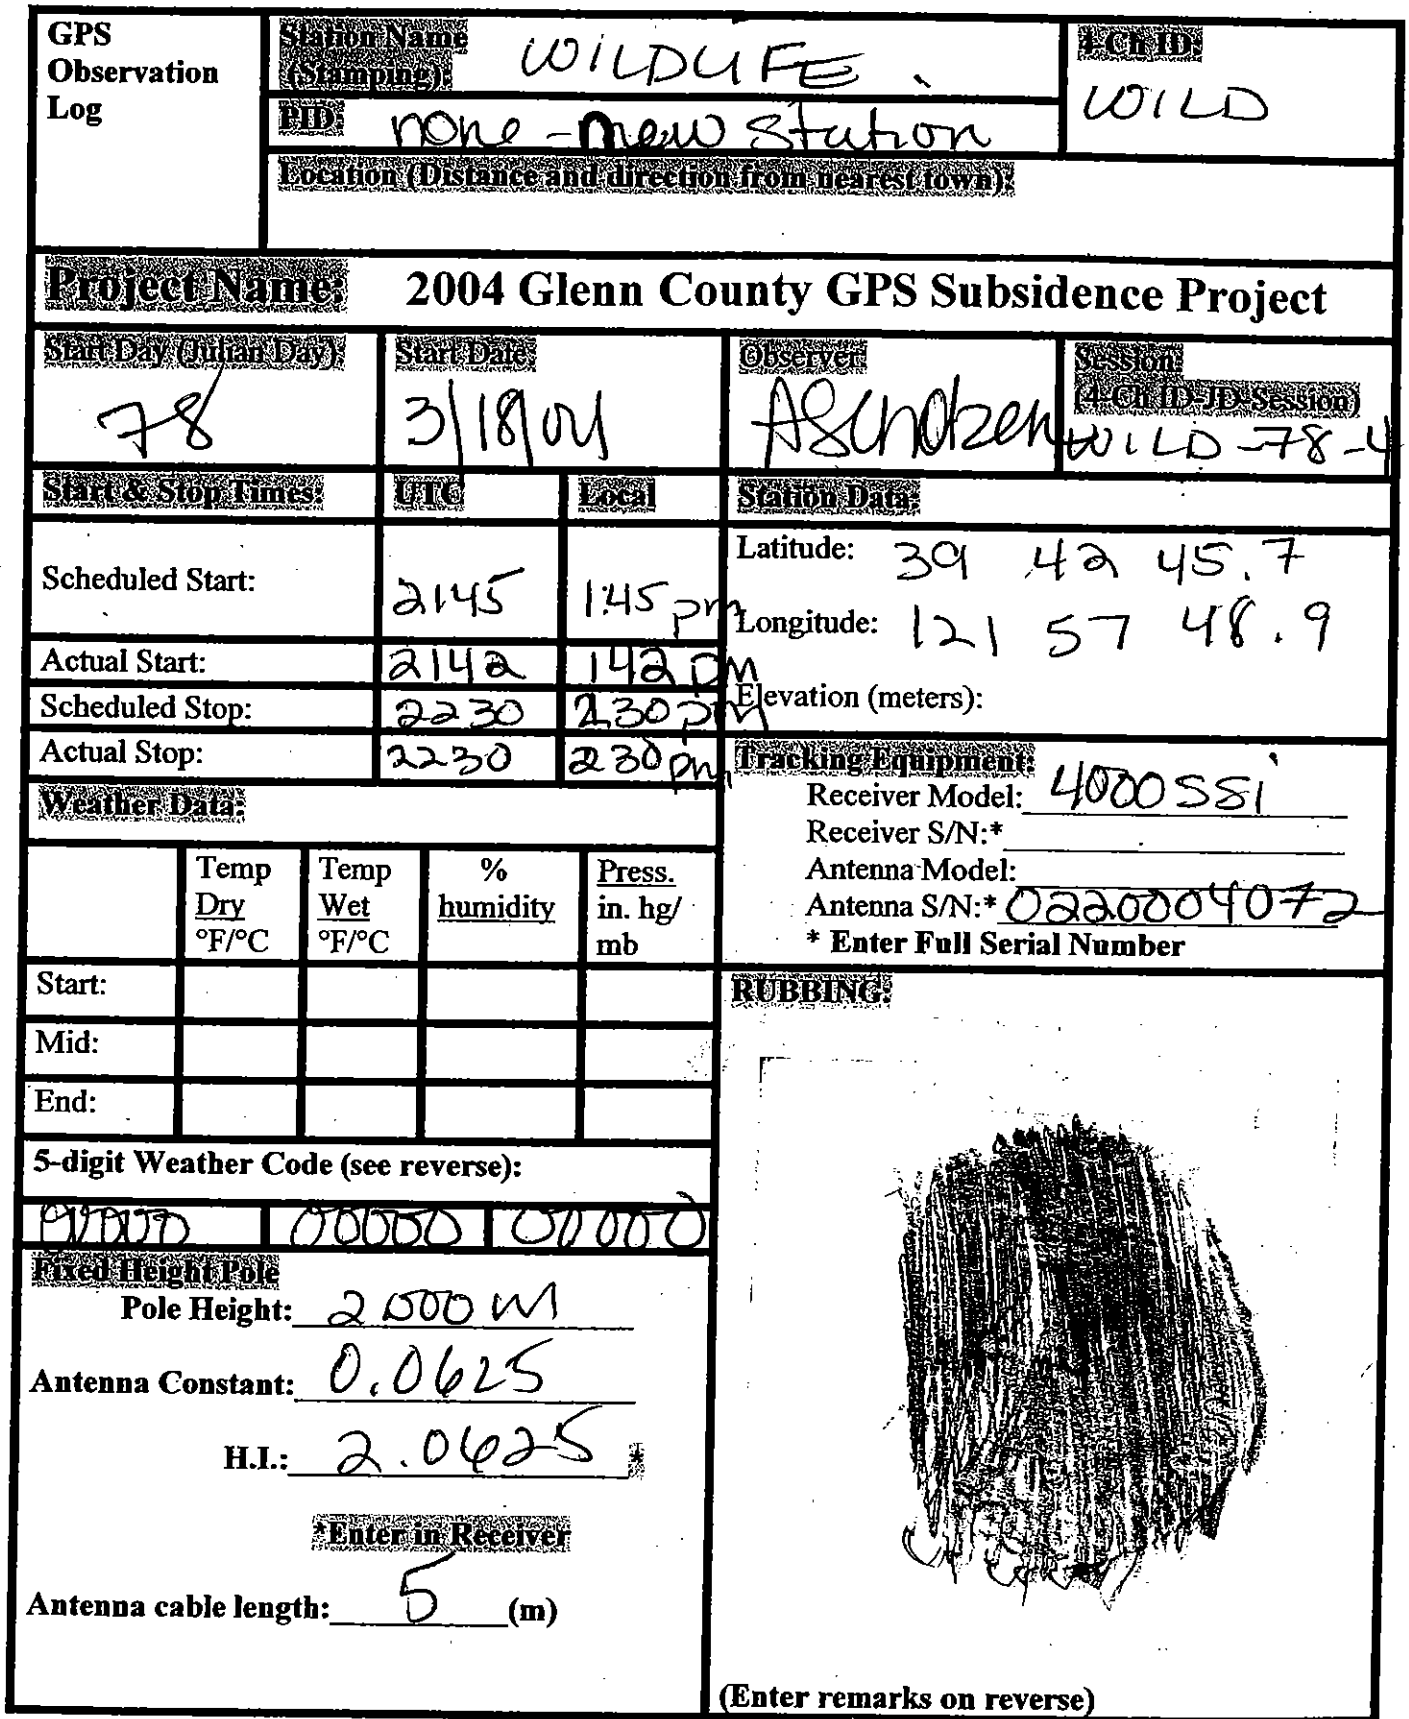 GPS
Observation
Log
Station Name
(Stamping):
WILDLIFE
4-Ch ID:
WILD
PID: none - new station
Location (Distance and direction from nearest town):
Project Name: 2004 Glenn County GPS Subsidence Project
Start Day (Julian Day)
78
Start Date
3/18/04
Observer
ASchotzen
Session
(4-Ch ID-JD-Session)
WILD-78-4
Start & Stop Times: UTC Local
Scheduled Start: 2145 1:45 pm
Actual Start: 2142 142 pm
Scheduled Stop: 2230 230 pm
Actual Stop: 2230 230 pm
Station Data:
Latitude: 39 42 45.7
Longitude: 121 57 48.9
Elevation (meters):
Tracking Equipment:
Receiver Model: 4000SSi
Receiver S/N:*
Antenna Model:
Antenna S/N:* 0220004072
* Enter Full Serial Number
Weather Data:
Temp
Dry
°F/°C
Temp
Wet
°F/°C
%
humidity
Press.
in. hg/
mb
Start:
Mid:
End:
5-digit Weather Code (see reverse):
00000 00000 00000
Fixed Height Pole
Pole Height: 2.000 M
Antenna Constant: 0.0625
H.I.: 2.0625 *
*Enter in Receiver
Antenna cable length: 5 (m)
RUBBING:
(Enter remarks on reverse)